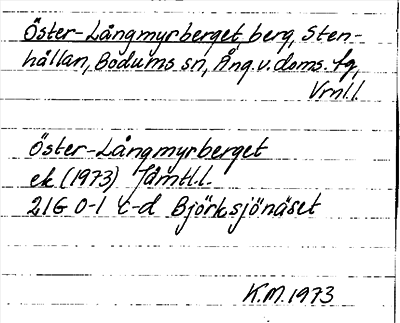 Öster-Långmyrberget berg, Sten-
hållan, Bodums sn, Ång.v.doms. fg,
Vrnl.l.
Öster-Långmyrberget
ek (1973) Jämtl.l.
21G 0-1 c-d Björksjönäset
K.M. 1973